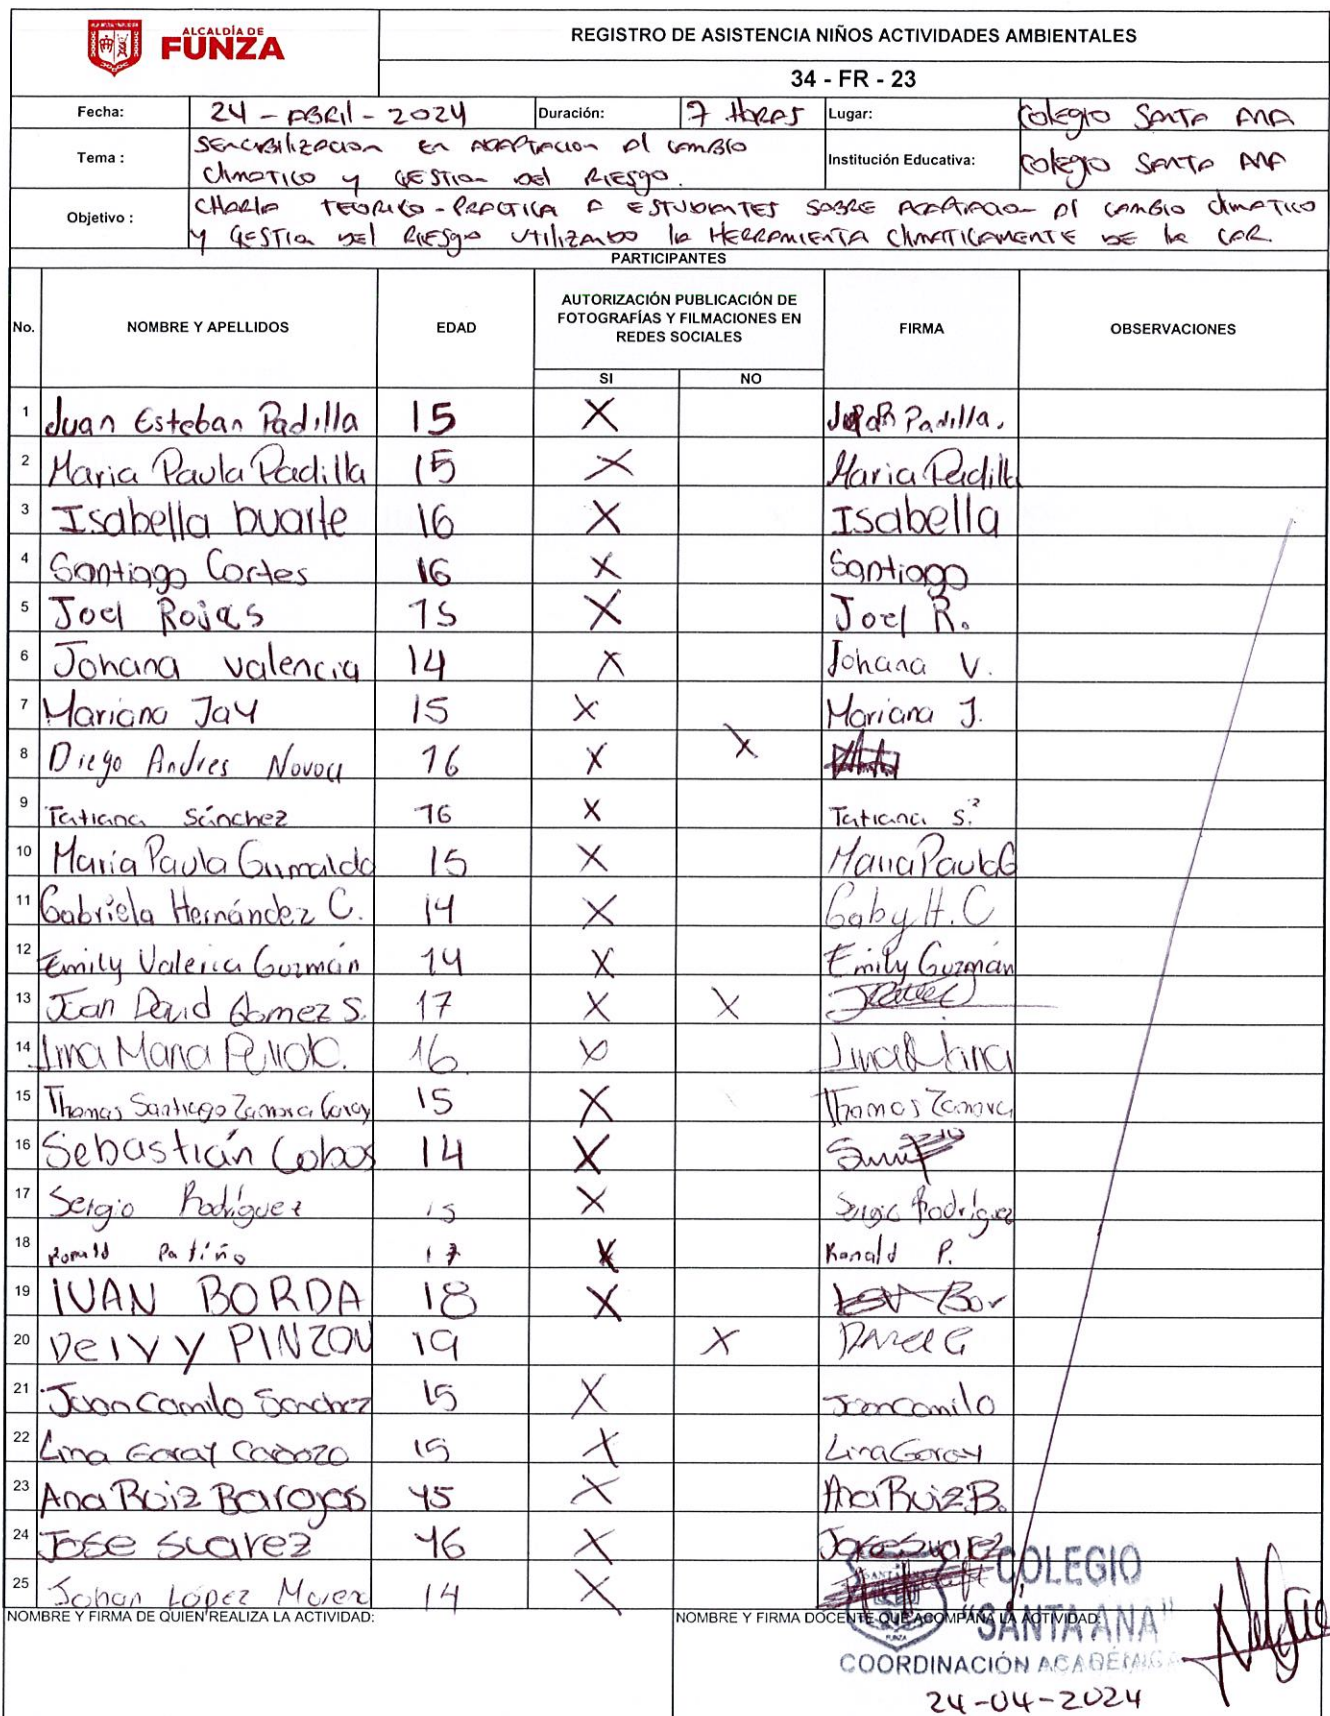 ALCALDÍA DE
FUNZA
REGISTRO DE ASISTENCIA NIÑOS ACTIVIDADES AMBIENTALES
34 - FR - 23
Fecha: 24 - ABRIl - 2024 Duración: 7 HORAS Lugar: Colegio SANTA ANA
Tema : SENCIBILIZACION EN ADAPTACION Al CAMBIO
ClIMATICO y GESTION DEl RIESgO.
Institución Educativa: Colegio SANTA ANA
Objetivo : CHARlA TEORICO-PRACTICA A ESTUDIANTES SOBRE ADAPTACION Al CAMBIO ClIMATICO
y GESTION DEl RIESgO UTIlIZANDO lA HERRAMIENTA ClIMATICAMENTE DE lA CAR.
PARTICIPANTES
No. NOMBRE Y APELLIDOS EDAD AUTORIZACIÓN PUBLICACIÓN DE FOTOGRAFÍAS Y FILMACIONES EN REDES SOCIALES FIRMA OBSERVACIONES
SI NO
1 Juan Esteban Padilla 15 X Padilla.
2 Maria Paula Padilla 15 X Maria Padilla
3 Isabella Duarte 16 X Isabella
4 Santiago Cortes 16 X Santiago
5 Joel Rojas 15 X Joel R.
6 Johana valencia 14 X Johana V.
7 Mariana Jay 15 X Mariana J.
8 Diego Andres Novoa 16 X X
9 Tatiana Sánchez 16 X Tatiana S.
10 Maria Paula Grimaldo 15 X Maria Paula G
11 Gabriela Hernández C. 14 X Gaby H. C
12 Emily Valeria Guzmán 14 X Emily Guzmán
13 Juan David Gomez S. 17 X X
14 Lina Maria 16 X Lina Maria
15 Thomas Santiago Zamora Garay 15 X Thomas Zamora
16 Sebastián Cobos 14 X
17 Sergio Rodríguez 15 X Sergio Rodríguez
18 Ronald Patiño 17 X Ronald P.
19 IVAN BORDA 18 X
20 DeIVY PINZON 19 X
21 Juan Camilo Sanchez 15 X Juan Camilo
22 Lina Garay Cardozo 15 X Lina Garay
23 Ana Ruiz Barajas 15 X Ana Ruiz B.
24 Jose Suarez 16 X Jose Suarez
25 Johan López 14 X
NOMBRE Y FIRMA DE QUIEN REALIZA LA ACTIVIDAD: NOMBRE Y FIRMA DOCENTE QUE ACOMPAÑA LA ACTIVIDAD:
COLEGIO
"SANTA ANA"
COORDINACIÓN ACADÉMICA
24-04-2024